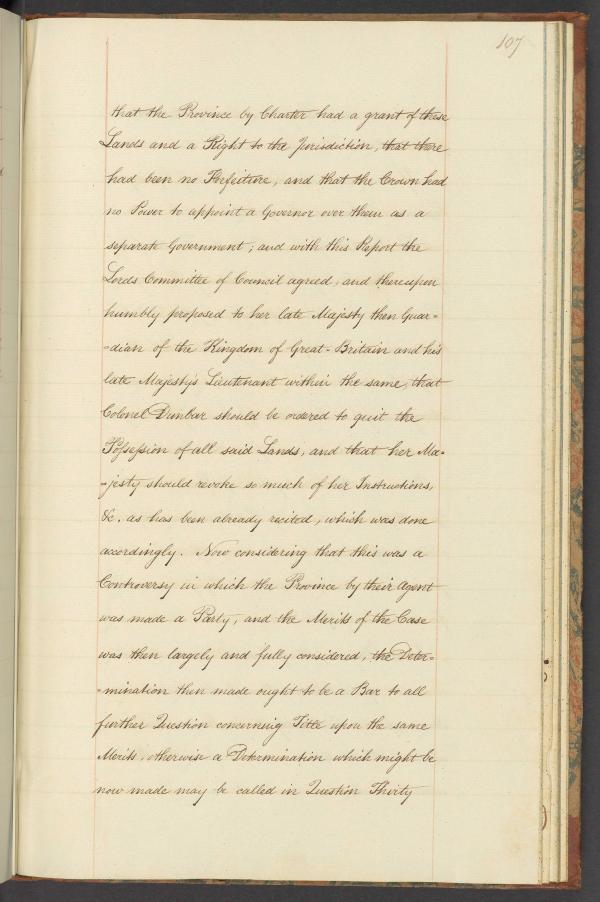 107
that the Province by Charter had a grant of these
Lands and a Right to the Jurisdiction, that there
had been no Forfeiture, and that the Crown had
no Power to appoint a Governor over them as a
separate Government; and with this Report the
Lords Committee of Council agreed, and thereupon
humbly proposed to her late Majesty then Guar=
=dian of the Kingdom of Great-Britain and his
late Majesty's Lieutenant within the same, that
Colonel Dunbar should be ordered to quit the
Possession of all said Lands, and that her Ma=
=jesty should revoke so much of her Instructions,
&c. as has been already recited, which was done
accordingly. Now considering that this was a
Controversy in which the Province by their Agent
was made a Party, and the Merits of the Case
was then largely and fully considered, the Deter=
=mination then made ought to be a Bar to all
further Question concerning Title upon the same
Merits, otherwise a Determination which might be
now made may be called in Question Thirty